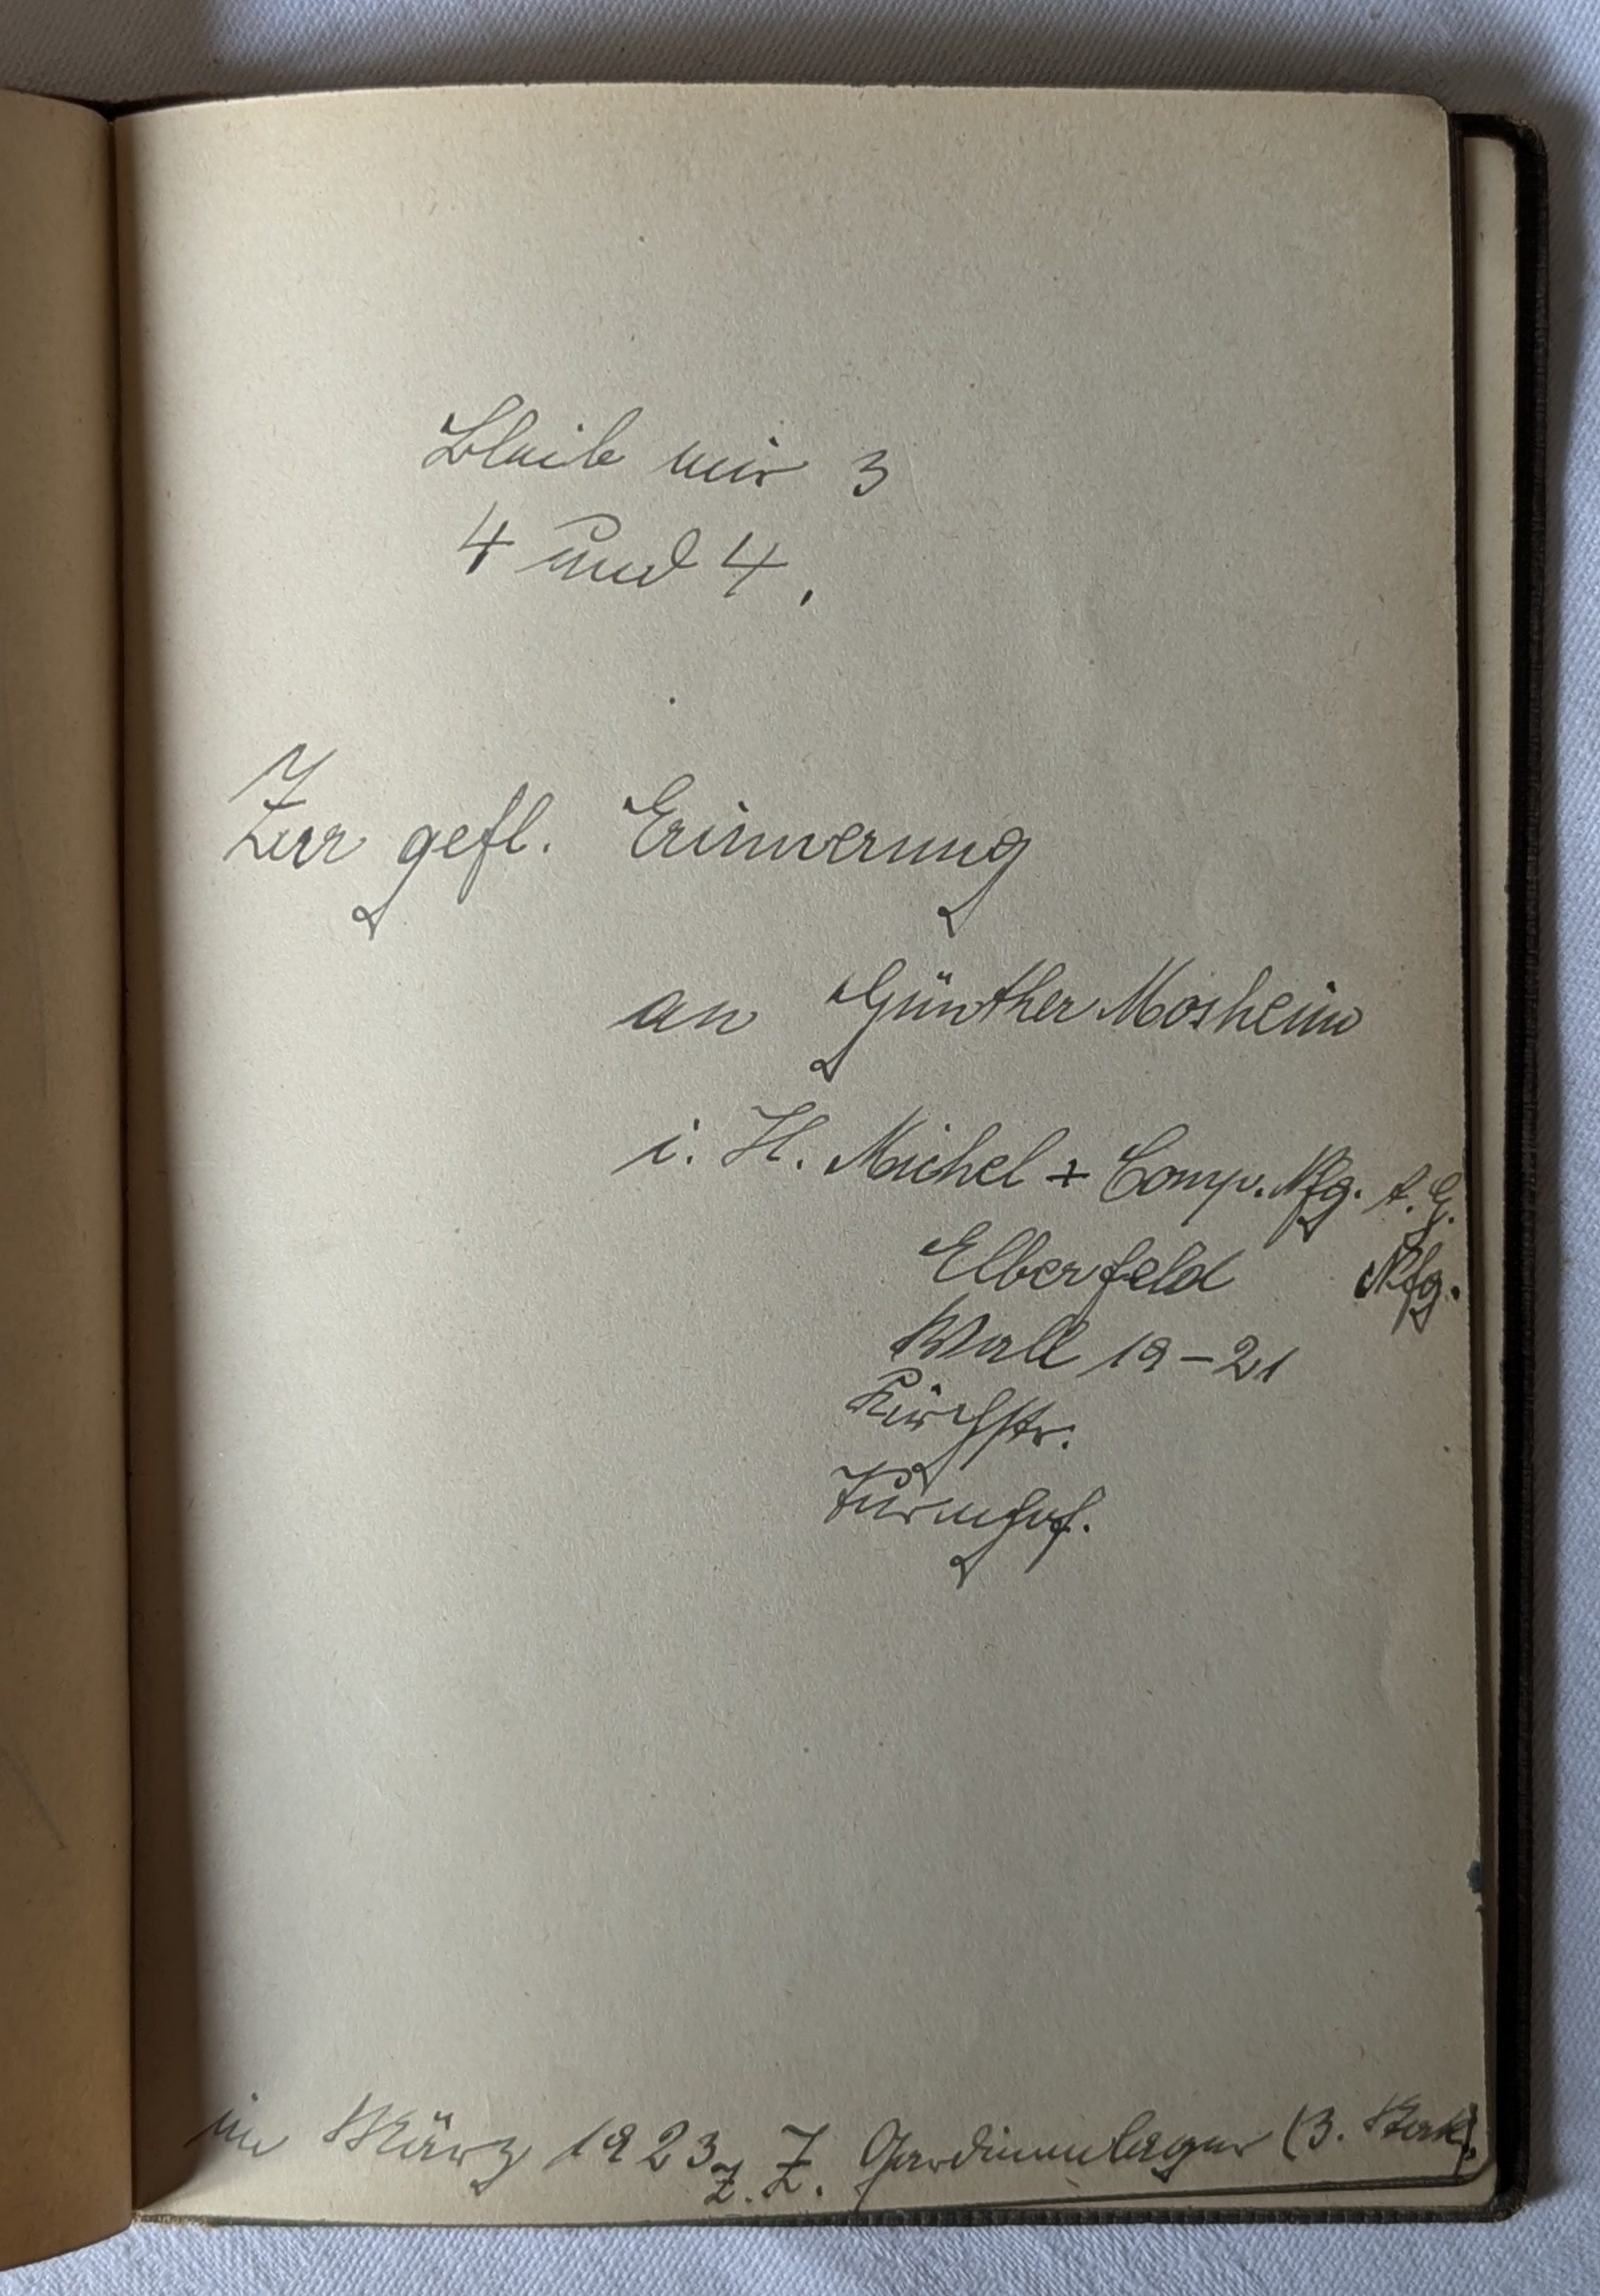 Bleib mir 3
4 und 4.
Zur gefl. Erinnerung
an Günther Mosheim
i. H. Michel + Comp. Nfg. A. G.
Elberfeld Nfg.
Wall 19-21
Kirchstr.
Turmhof.
im März 1923 z. Z. Gardinenlager (3. Stock).